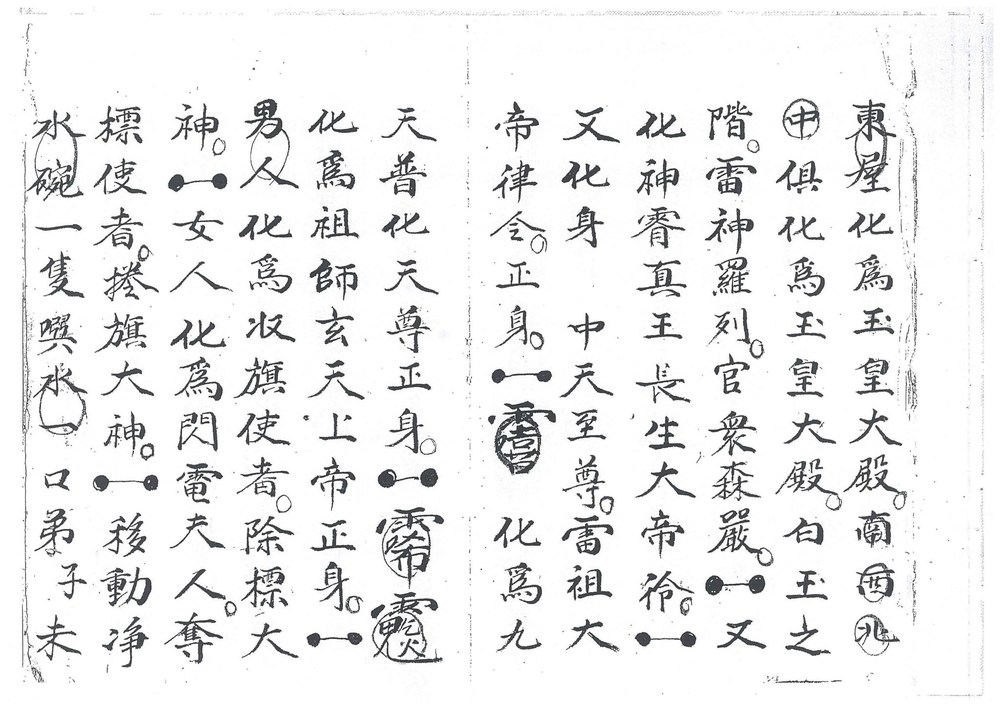 東屋化爲玉皇大殿。南西北
中俱化爲玉皇大殿。白玉之
階。雷神羅列。官衆森嚴。又
化神霄真王長生大帝
又化身 中天至尊。雷祖大
帝律令。正身。 化爲九
天普化天尊正身。
化爲祖師玄天上帝正身。
男人化爲収旗使者。除標大
神。女人化爲閃電夫人。奪
標使者。捲旗大神。移動净
水碗一隻噀水一口弟子未